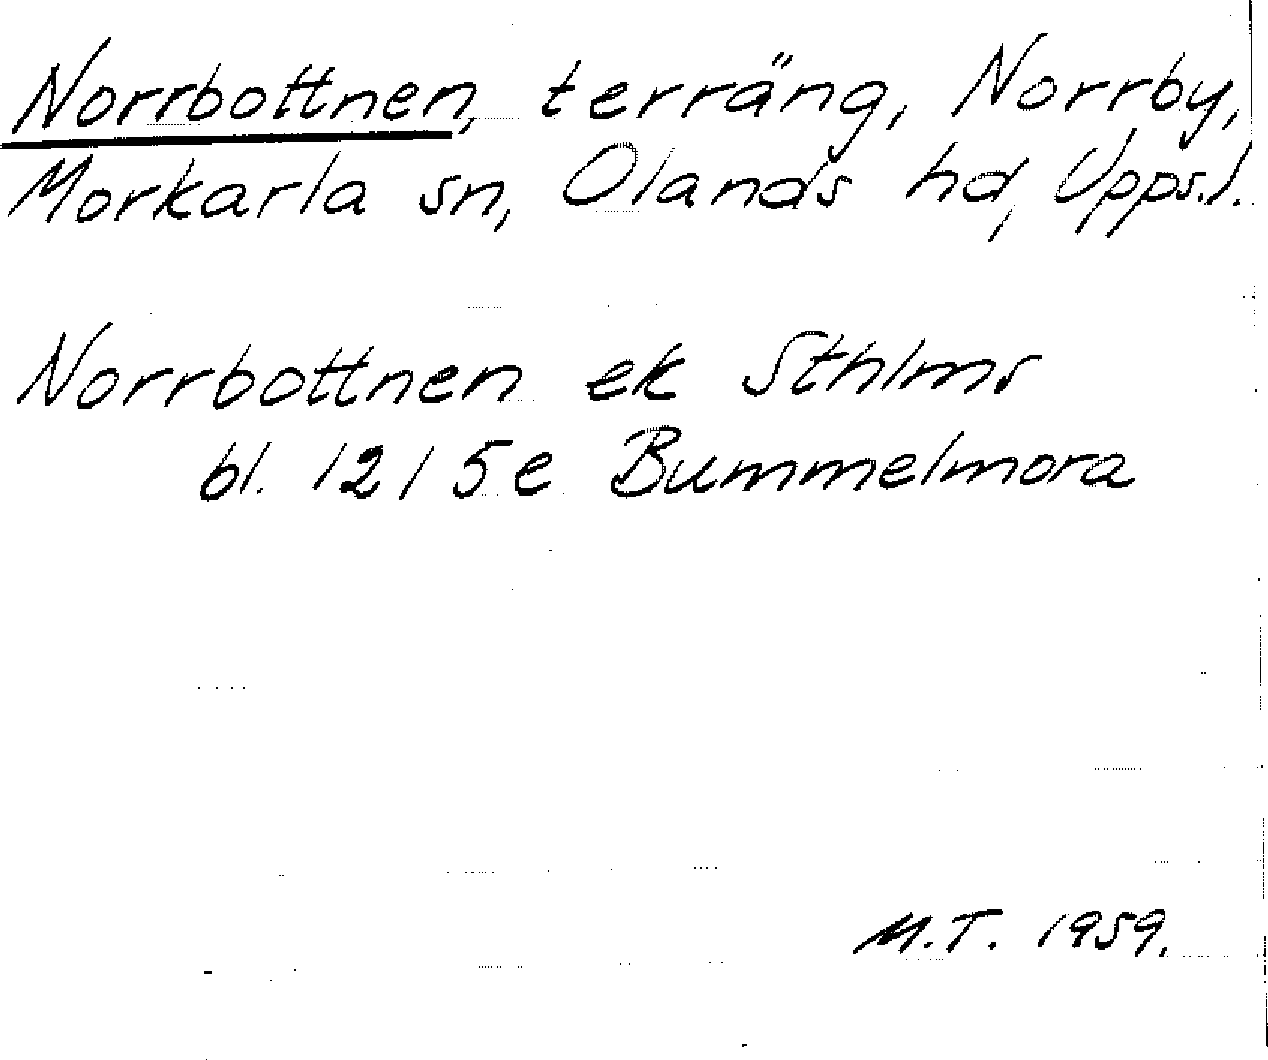 Norrbottnen, terräng, Norrby,
Morkarla sn, Olands hd, Upps.l.
Norrbottnen ek Sthlms
bl. 12 I 5 e Bummelmora
M.T. 1959.